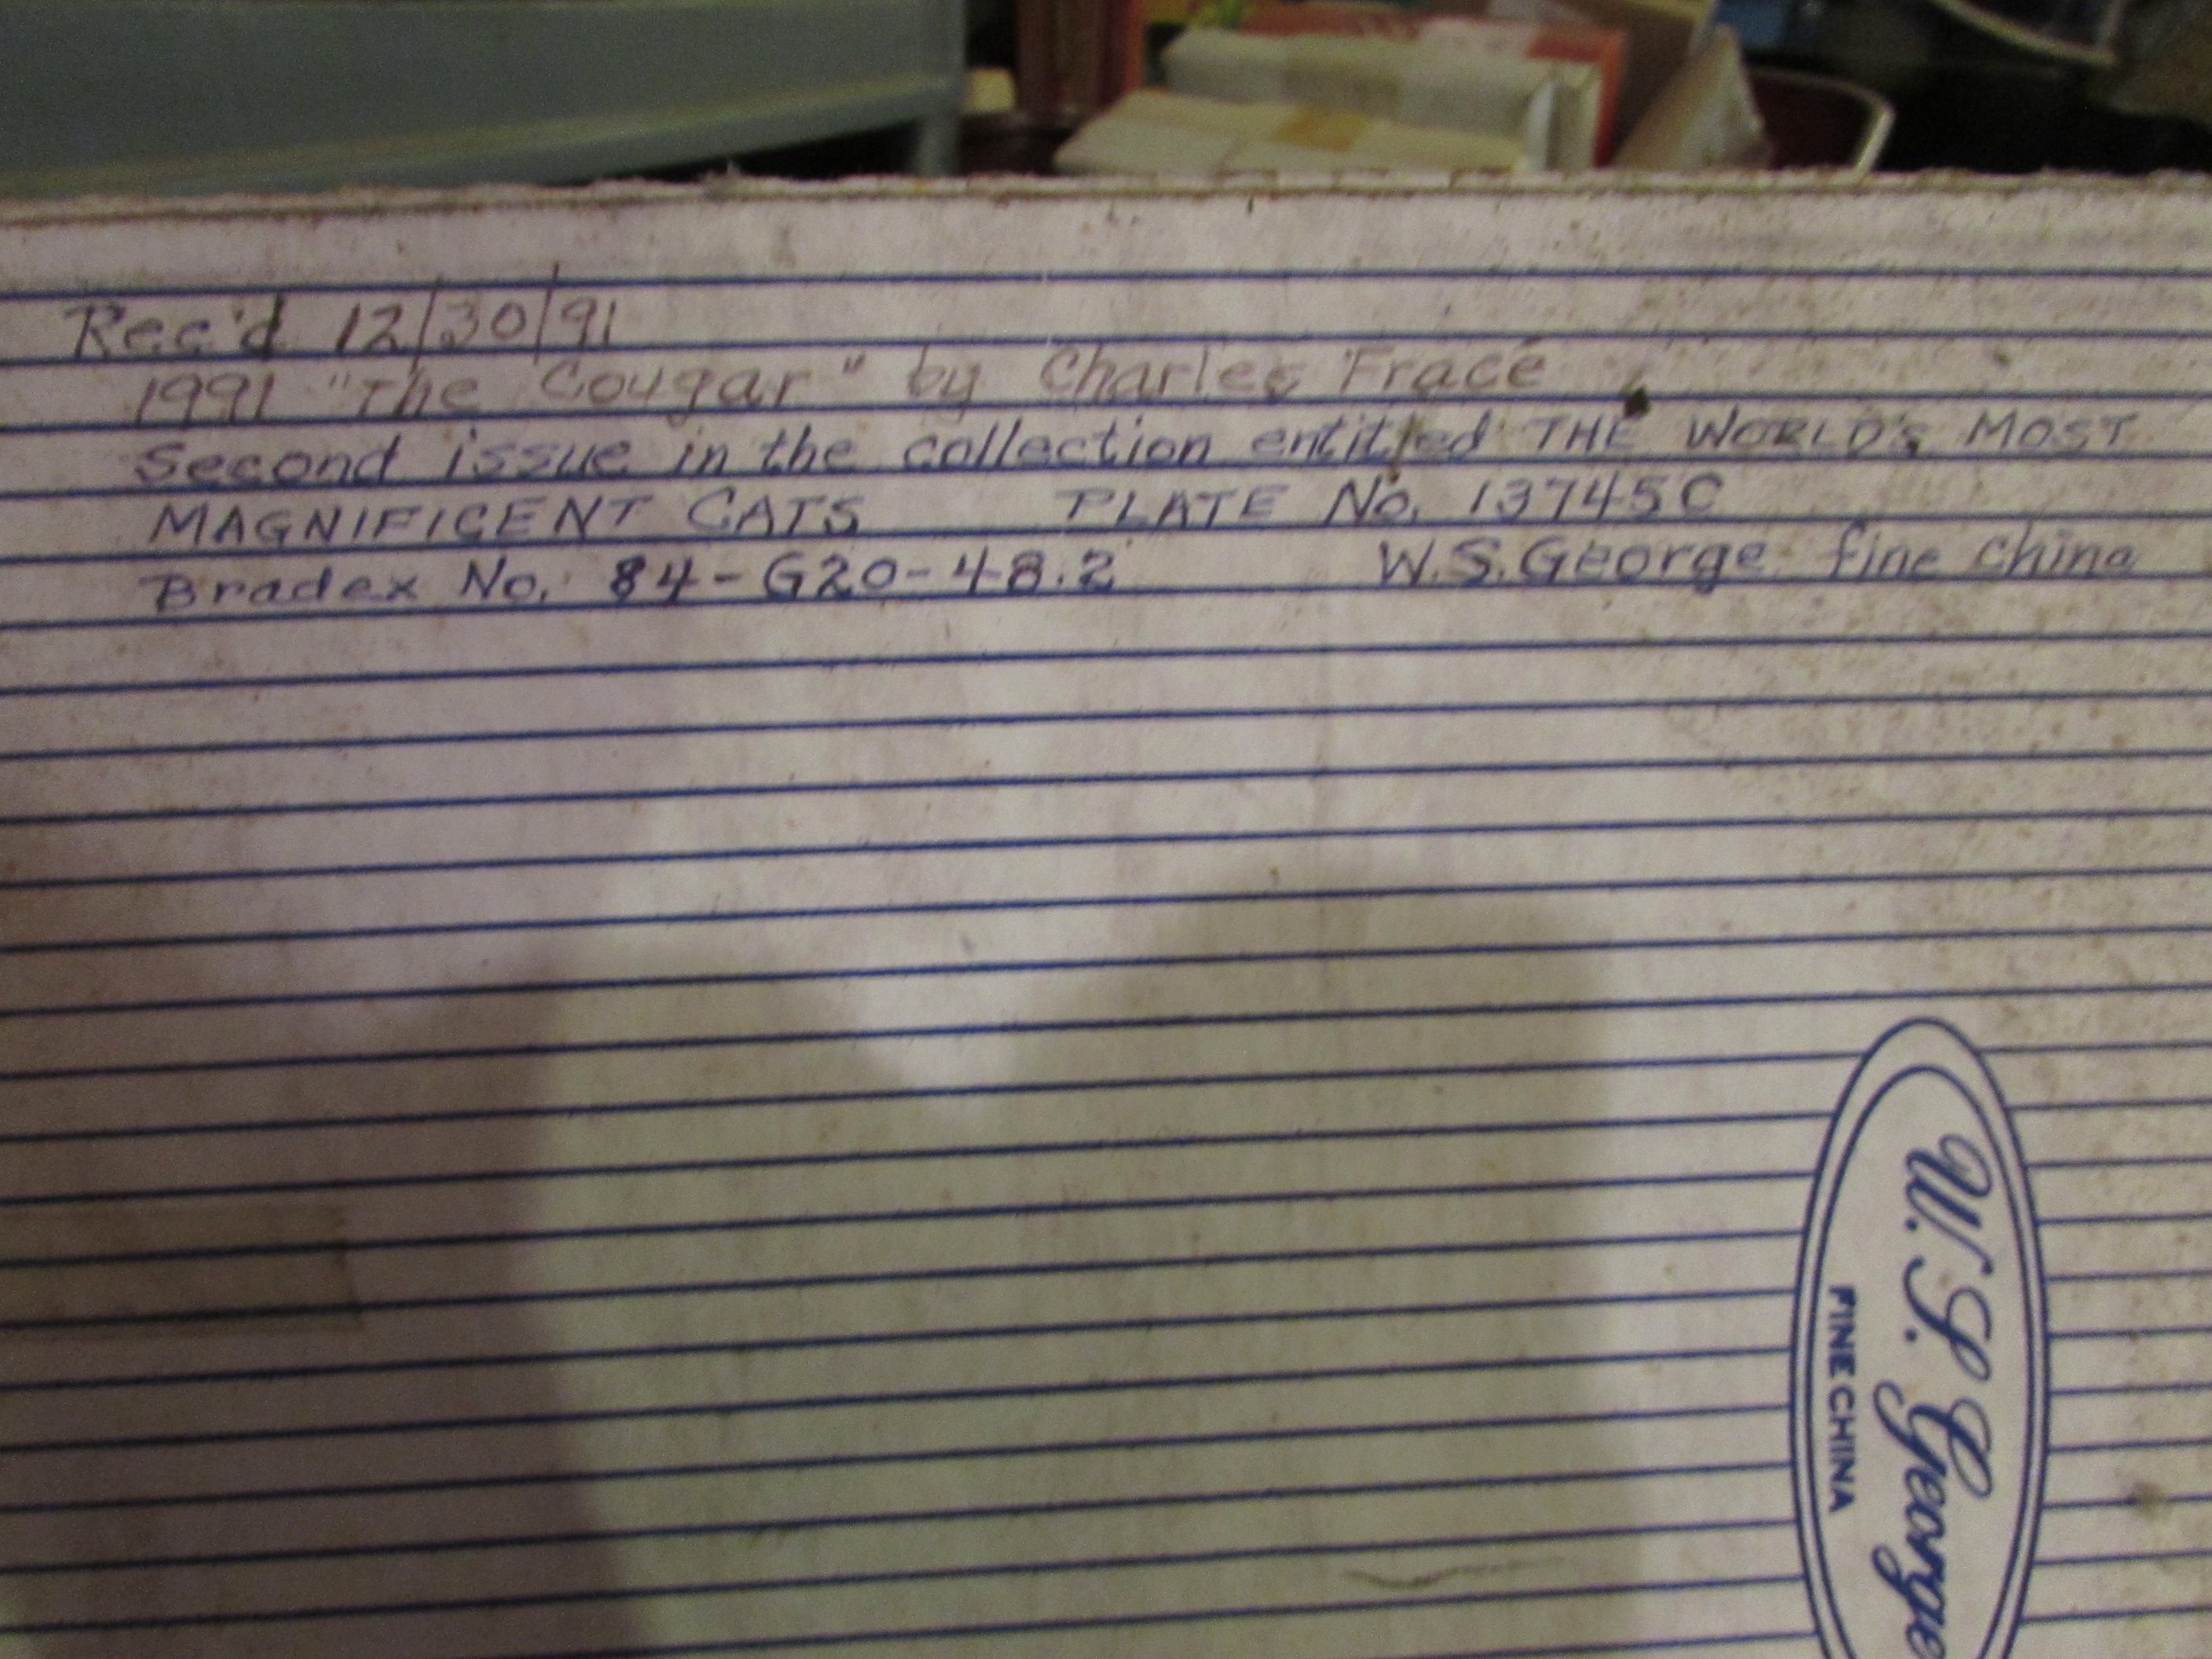 Rec'd 12/30/91
1991 "The Cougar" by Charles Fracé
Second issue in the collection entitled THE WORLD'S MOST
MAGNIFICENT CATS PLATE No. 13745C
Bradex No. 84-G20-48.2 W.S. George fine china
W. S. George
FINE CHINA